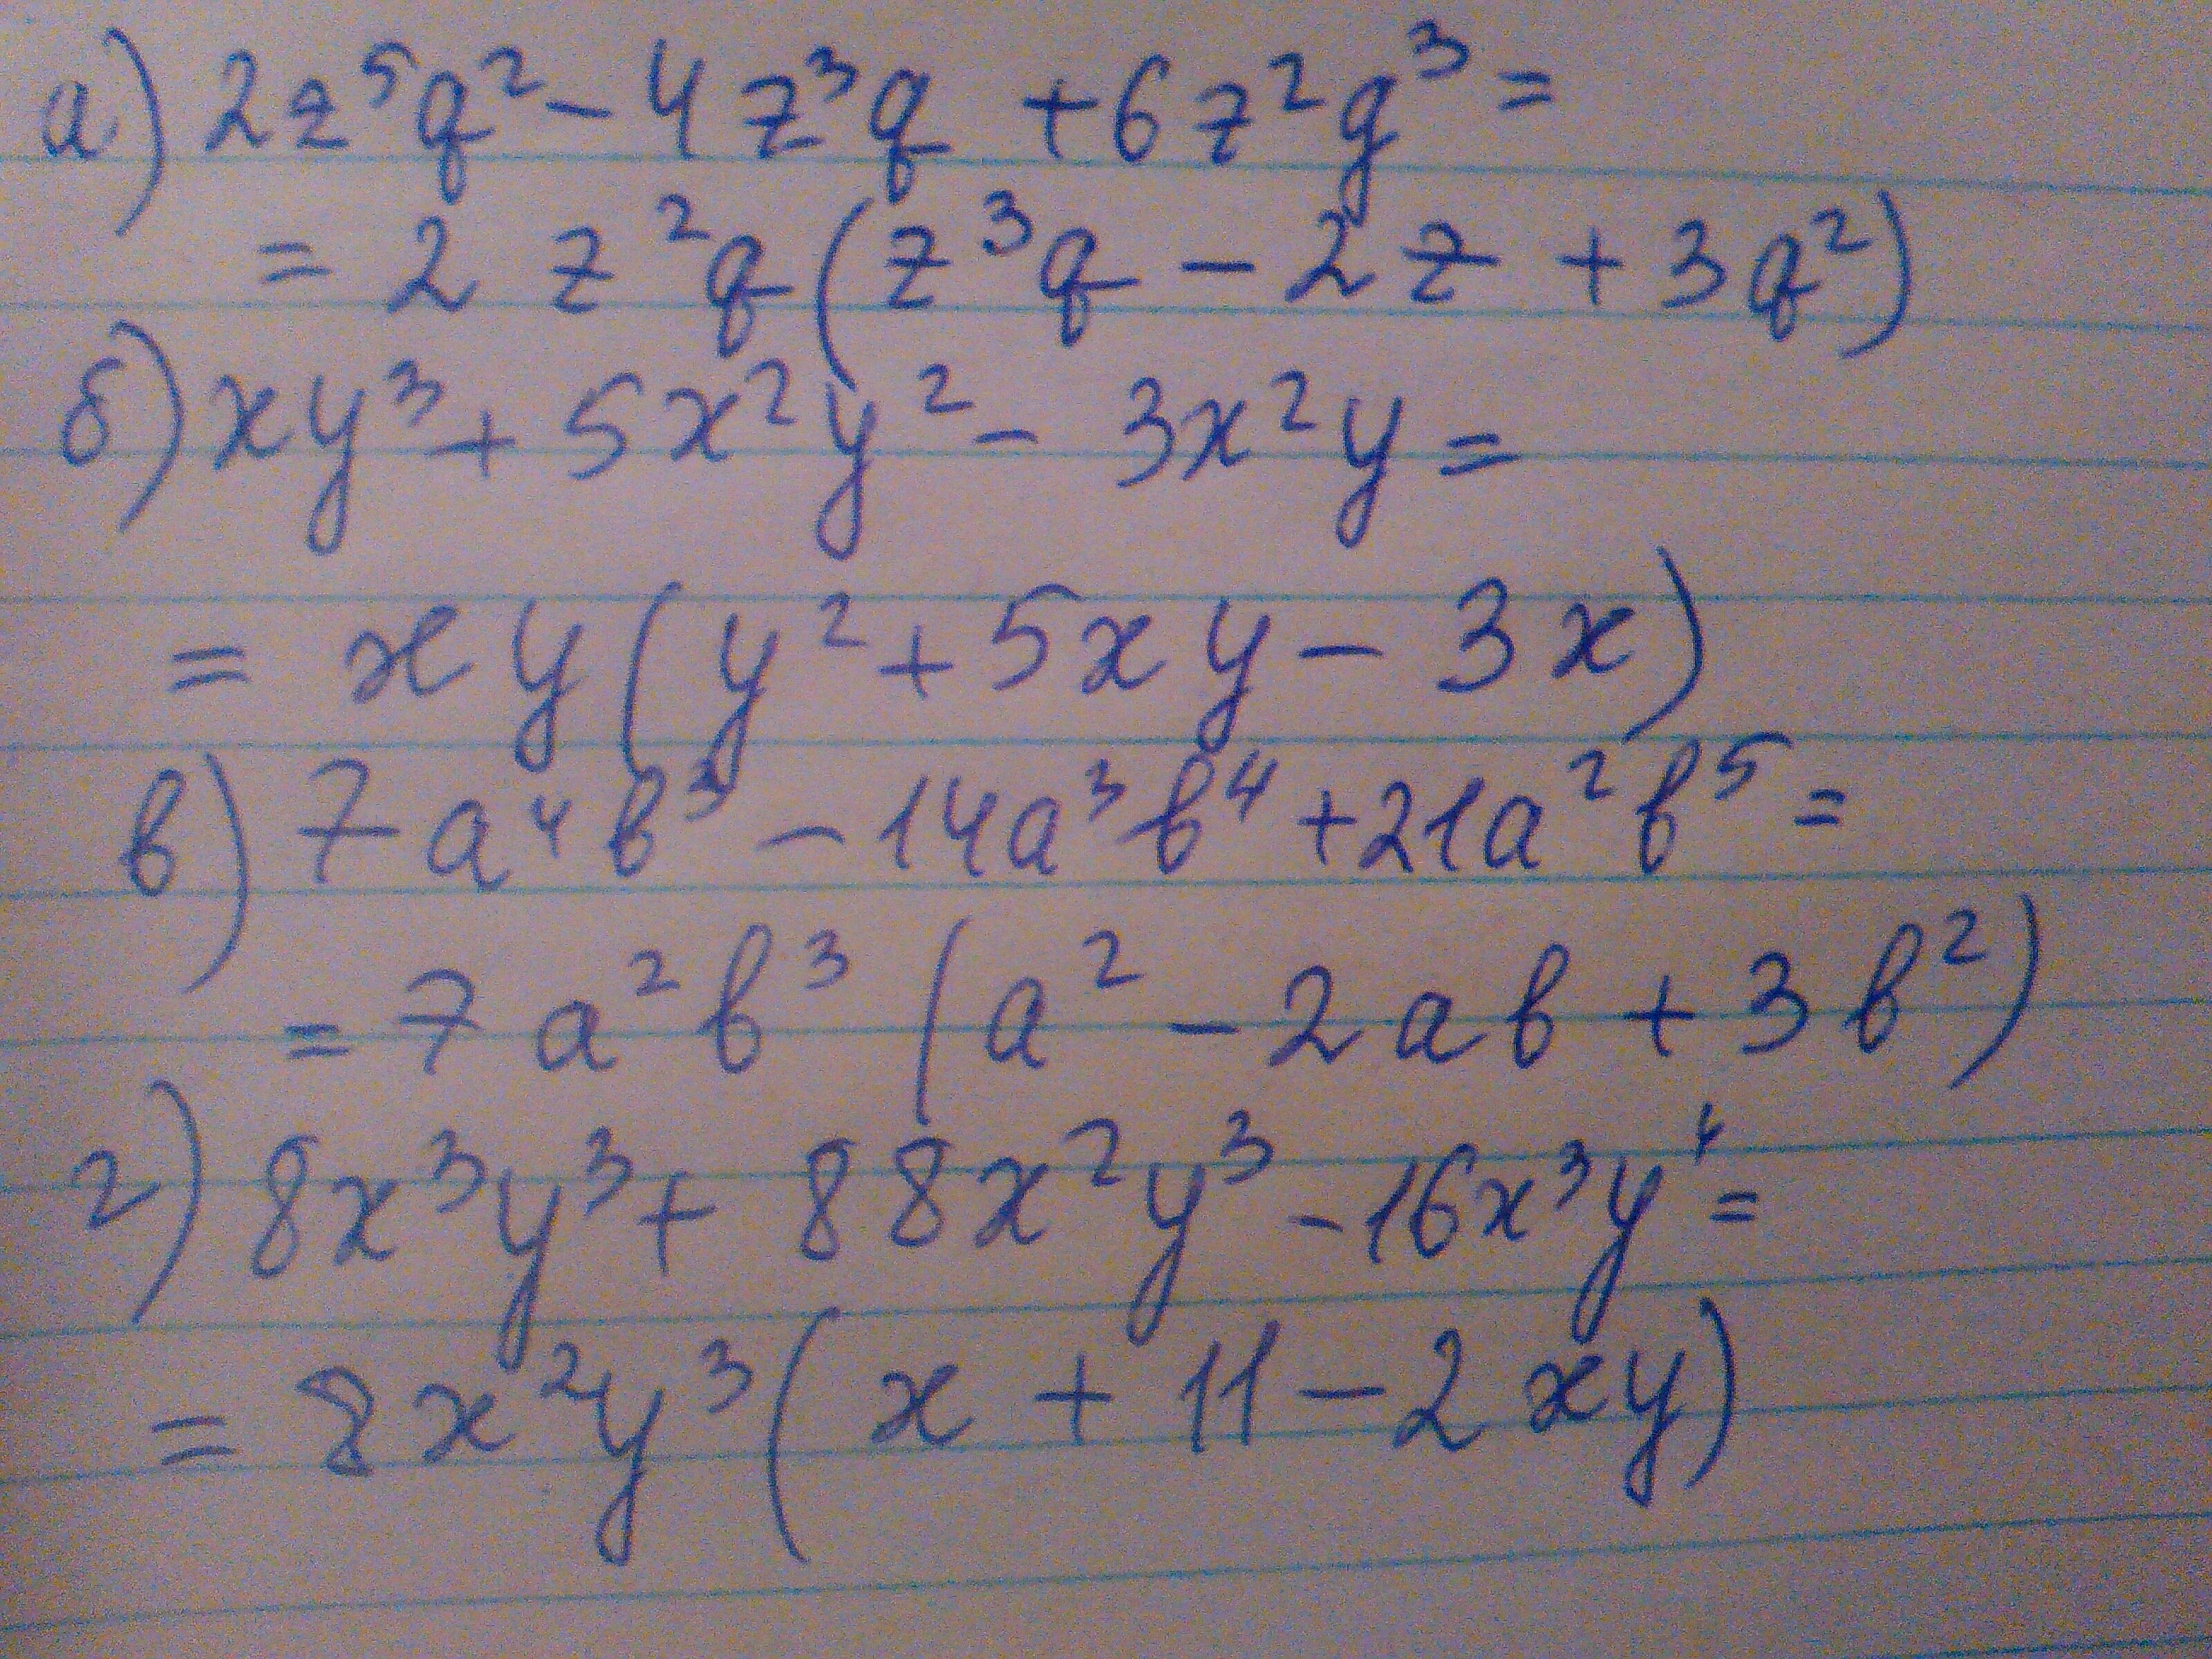 а) 2z⁵q² - 4z³q + 6z²q³ =
= 2z²q(z³q - 2z + 3q²)
б) xy³ + 5x²y² - 3x²y =
= xy(y² + 5xy - 3x)
в) 7a⁴b³ - 14a³b⁴ + 21a²b⁵ =
= 7a²b³(a² - 2ab + 3b²)
г) 8x³y³ + 88x²y³ - 16x³y⁴ =
= 8x²y³(x + 11 - 2xy)